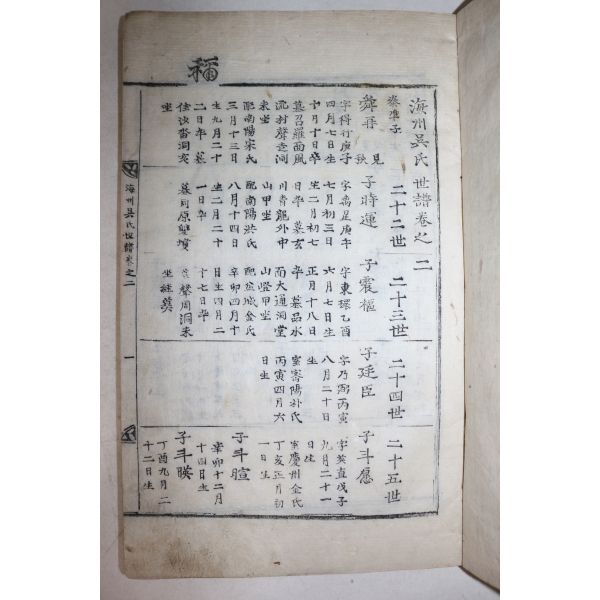 福
海州吳氏世譜卷之二
泰準子
二十二世
二十三世
二十四世
二十五世
舜再
見
秋
行庚子
四月七日生
十月十日卒
墓召羅面風
流村聲壺洞
未坐
配南陽宋氏
三月十三日
生九月二十
二日卒 墓
佳汝沓洞亥
坐
子時運
字為足庚午
七月初三日
生二月初七
日卒 墓玄
川青龍外中
山甲坐
配南陽洪氏
八月十四日
生二月二十
一日卒
墓司原雙墳
子震樞
字東環乙酉
六月七日生
正月十八日
卒 墓品水
面大通洞堂
山嶝甲坐
配盆城金氏
辛卯四月十
日生四月二
十七日卒
聲周洞未
坐
子廷臣
字乃弼丙寅
八月二十日
生
室密陽朴氏
丙寅四月六
日生
子斗應
字英直戊子
九月二十一
日生
室慶州金氏
丁亥正月初
一日生
子斗暄
辛卯十二月
十四日生
子斗暎
丁酉九月二
十二日生
海州吳氏世譜卷之二
一